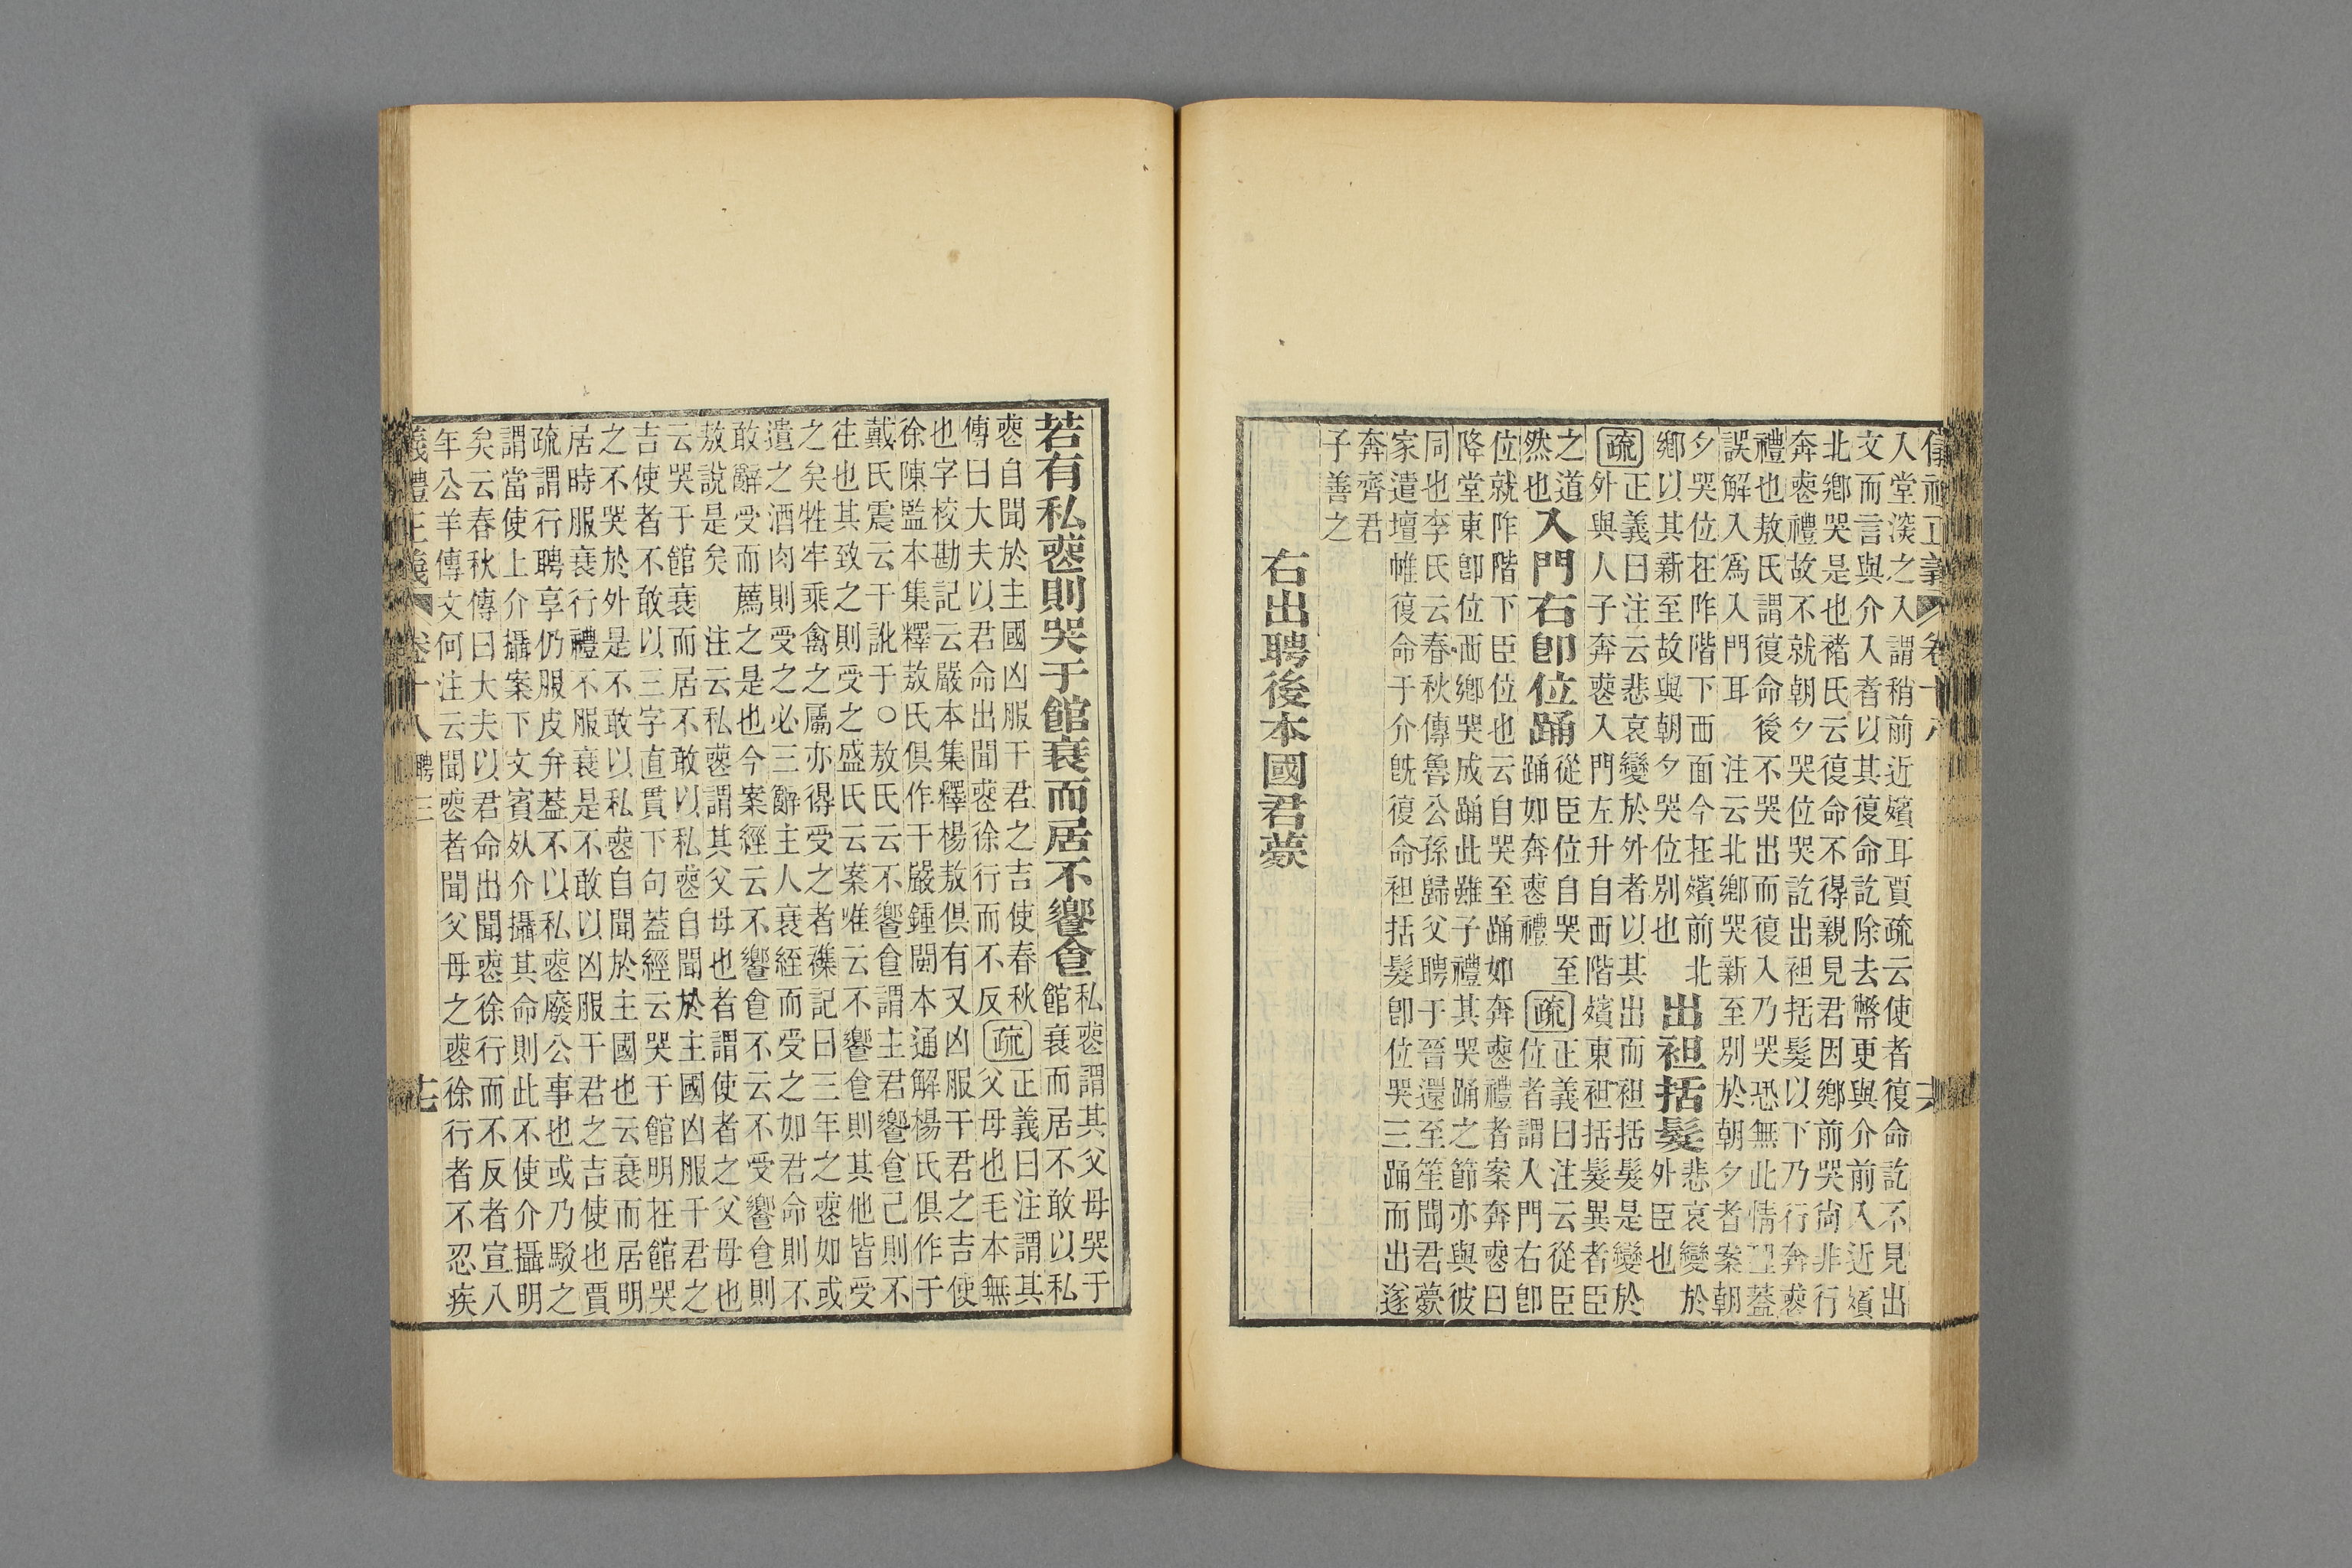 儀禮正義 卷十八
入堂深之入謂稍前近殯耳賈疏云使者復命訖不見出
文而言與介入者以其復命訖除去幣更與介前入近殯
北鄉哭是也褚氏云復命不得親見君因鄉前哭尙非行
奔喪禮故不就朝夕哭位哭訖出袒括髮以下乃行奔喪
禮也敖氏謂復命後不哭出而復入乃哭恐無此情理蓋
誤解入爲入門耳 注云北鄉哭新至別於朝夕者案朝
夕哭位在阼階下西面今在殯前北
鄉以其新至故與朝夕哭位別也
出袒括髮
悲哀變於
外臣也
疏正義曰注云悲哀變於外者以其出而袒括髮是變於
外與人子奔喪入門左升自西階殯東袒括髮異者臣
之道
然也
入門右卽位踊
從臣位自哭至
踊如奔喪禮
疏正義曰注云從臣
位者謂入門右卽
位就阼階下臣位也云自哭至踊如奔喪禮者案奔喪曰
降堂東卽位西鄉哭成踊此雖子禮其哭踊之節亦與彼
同也李氏云春秋傳魯公孫歸父聘于晉還至笙聞君薨
家遣壇帷復命于介旣復命袒括髮卽位哭三踊而出遂
奔齊君
子善之
右出聘後本國君薨
若有私喪則哭于館衰而居不饗食
私喪謂其父母哭于
館衰而居不敢以私
喪自聞於主國凶服干君之吉使春秋
傳曰大夫以君命出聞喪徐行而不反
疏正義曰注謂其
父母也毛本無
也字校勘記云嚴本集釋楊敖俱有又凶服干君之吉使
徐陳監本集釋敖氏俱作干嚴鍾閩本通解楊氏俱作于
戴氏震云干訛于○敖氏云不饗食謂主君饗食己則不
往也其致之則受之盛氏云案唯云不饗食則其他皆受
之矣牲牢乘禽之屬亦得受之者襍記曰三年之喪如或
遺之酒肉則受之必三辭主人衰絰而受之如君命則不
敢辭受而薦之是也今案經云不饗食不云不受饗食則
敖說是矣 注云私喪謂其父母也者謂使者之父母也
云哭于館衰而居不敢以私喪自聞於主國凶服干君之
吉使者不敢以三字直貫下句蓋經云哭于館明在館哭
之不哭於外是不敢以私喪自聞於主國也云衰而居明
居時服衰行禮不服衰是不敢以凶服干君之吉使也賈
疏謂行聘享仍服皮弁蓋不以私喪廢公事也或乃駁之
謂當使上介攝案下文賓死介攝其命則此不使介攝明
矣云春秋傳曰大夫以君命出聞喪徐行而不反者宣八
年公羊傳文何注云聞喪者聞父母之喪徐行者不忍疾
儀禮正義 卷十八 聘三